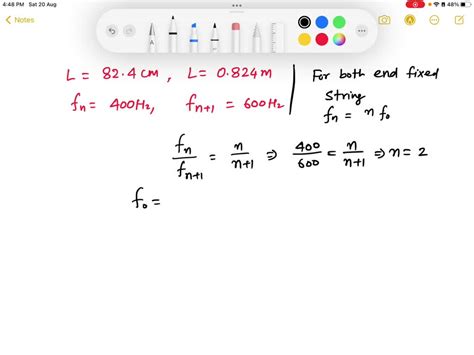 4:48 PM Sat 20 Aug
48%
Notes
A
L = 82.4 cm , L = 0.824 m
fn = 400Hz, fn+1 = 600Hz
For both end fixed
string
fn = n fo
fn/fn+1 = n/n+1 ⇒ 400/600 = n/n+1 ⇒ n = 2
fo =